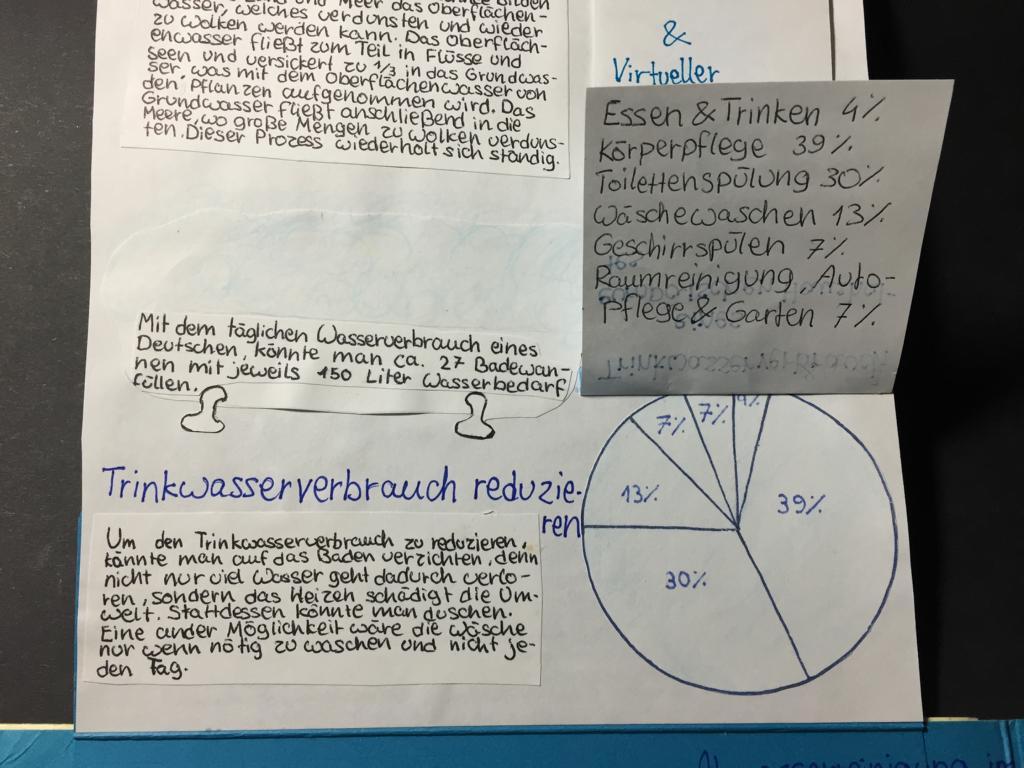 Wasser, welches verdunsten und wieder
zu Wolken werden kann. Das Oberfläch-
enwasser fließt zum Teil in Flüsse und
seen und versickert zu 1/3 in das Grundwas-
ser, was mit dem Oberflächenwasser von
den Pflanzen aufgenommen wird. Das
Grundwasser fließt anschließend in die
Meere, wo große Mengen zu Wolken verduns-
ten. Dieser Prozess wiederholt sich ständig.
&
Virtueller
Essen & Trinken 4%
Körperpflege 39%
Toilettenspülung 30%
Wäschewaschen 13%
Geschirrspülen 7%
Raumreinigung, Auto-
Pflege & Garten 7%
Mit dem täglichen Wasserverbrauch eines
Deutschen, könnte man ca. 27 Badewan-
nen mit jeweils 150 Liter Wasserbedarf
füllen.
Trinkwasserverbrauch reduzie-
ren
Um den Trinkwasserverbrauch zu reduzieren,
könnte man auf das Baden verzichten, denn
nicht nur viel Wasser geht dadurch verlo-
ren, sondern das Heizen schädigt die Um-
welt. Stattdessen könnte man duschen.
Eine ander Möglichkeit wäre die Wäsche
nur wenn nötig zu waschen und nicht je-
den Tag.
7%
7%
4%
13%
39%
30%